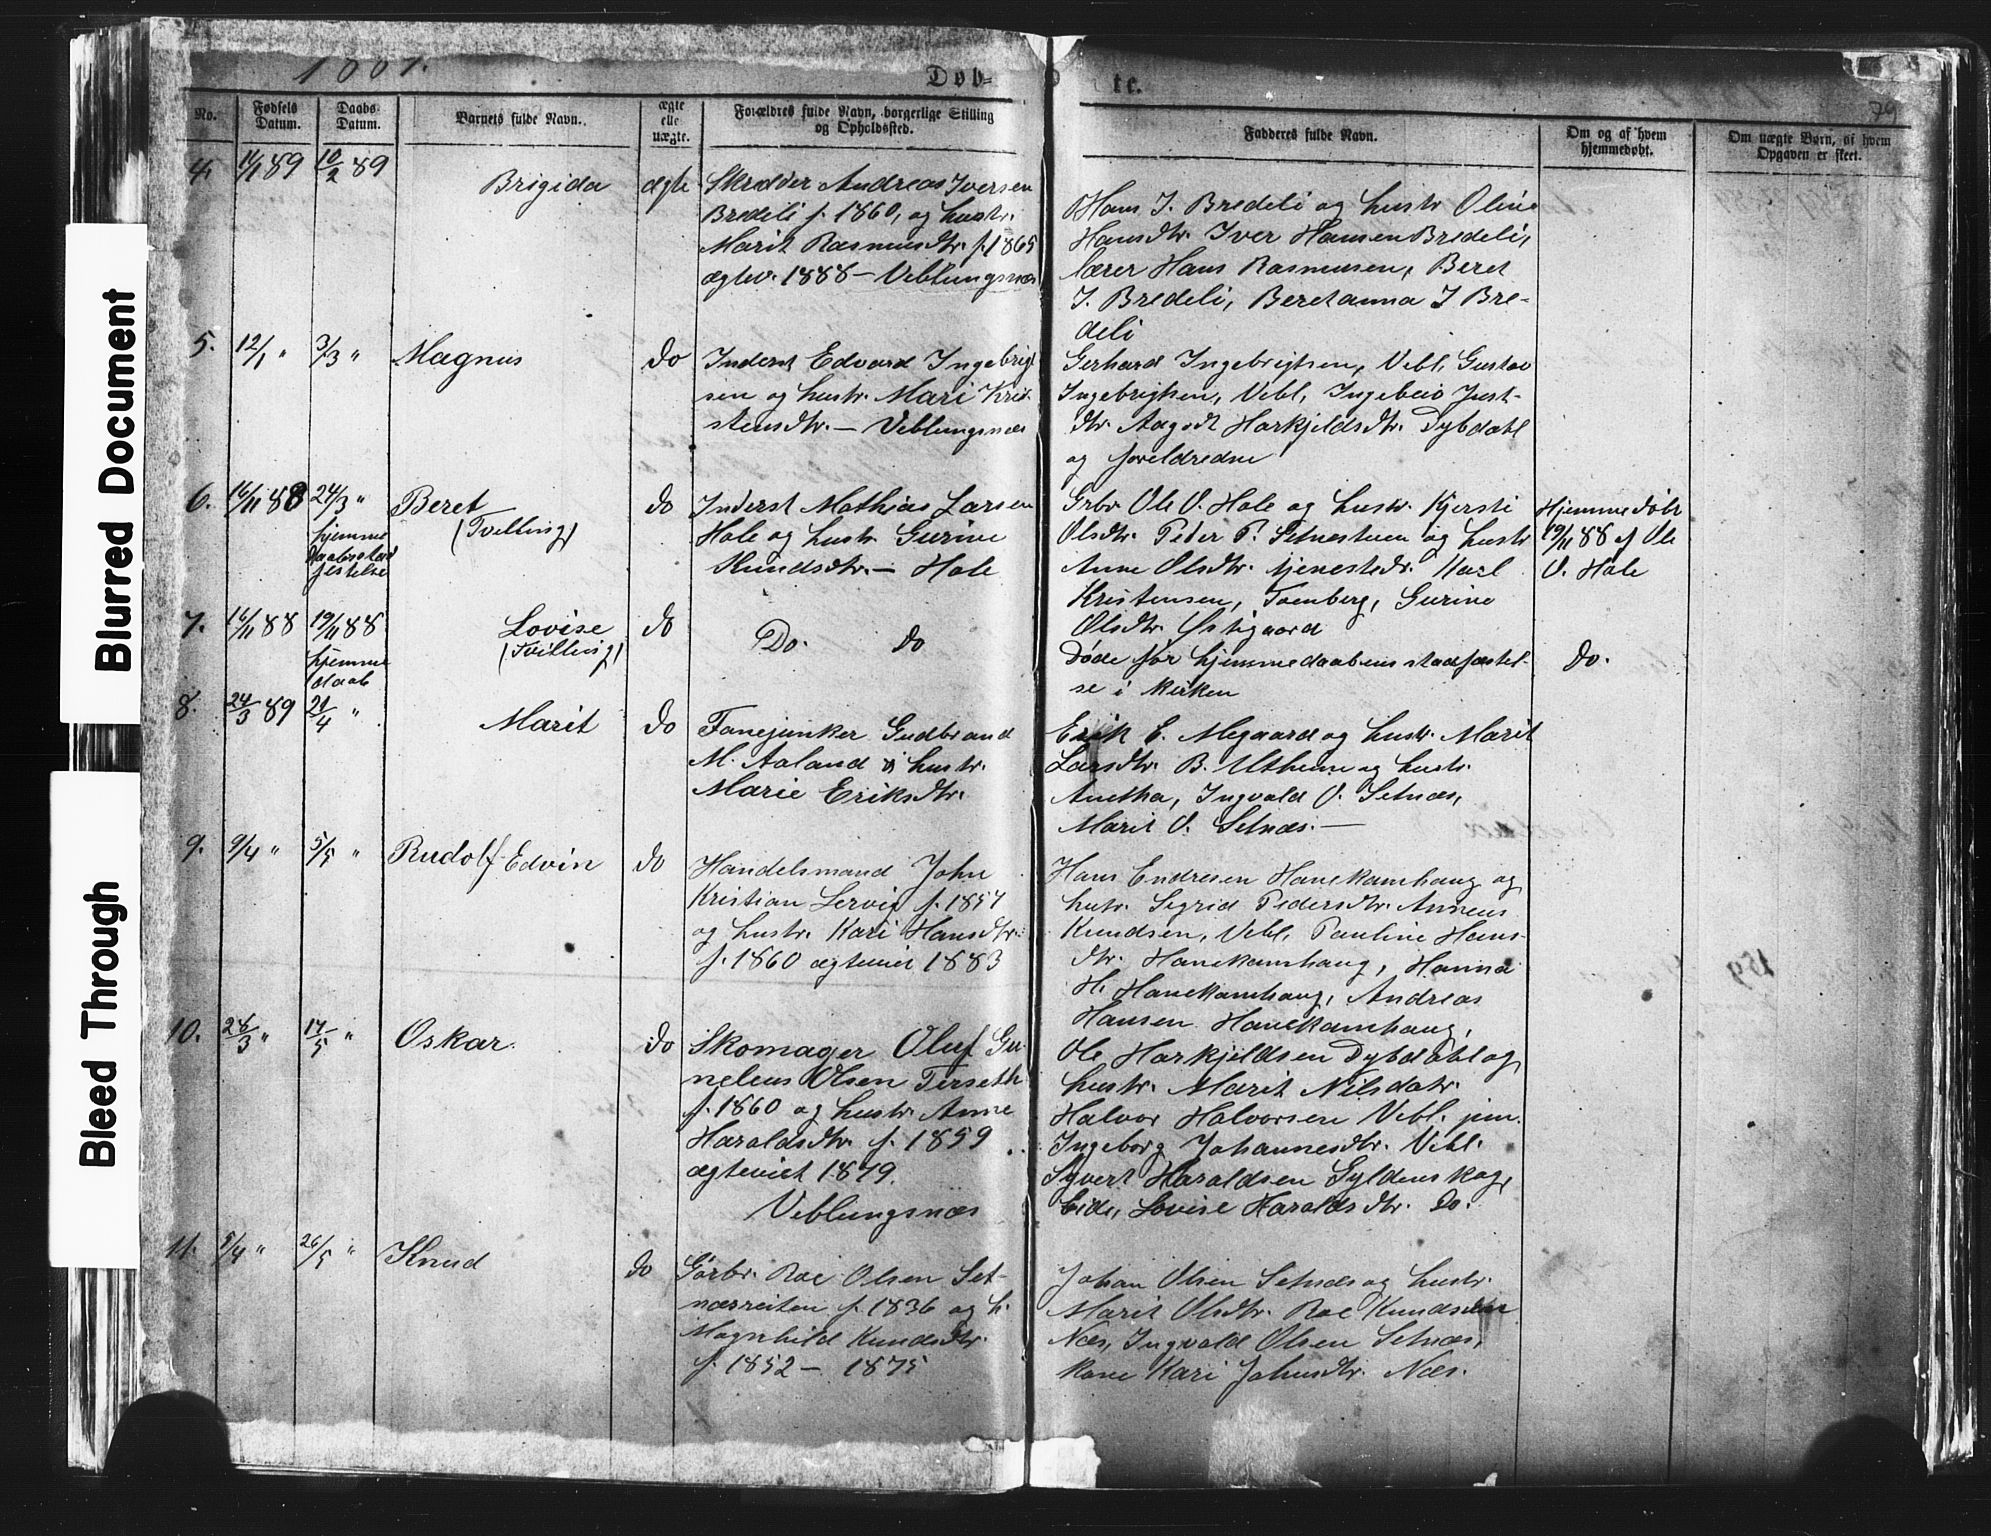 Blurred Document
Bleed Through
Døb=
te.
79
No.
Fødsels Datum.
Daabs- Datum.
Barnets fulde Navn.
ægte elle uægte.
Forældres fulde Navn, borgerlige Stilling og Opholdsted.
Fadderes fulde Navn.
Om og af hvem hjemmedøbt.
Om uægte Børn, af hvem Opgaven er skeet.
4. 11/1 89 10/2 89 Brigida ægte
Skrædder Andreas Iversen
Bredeli f. 1860, og hustr.
Marit Rasmusdtr. f. 1865
ægtev. 1888 — Veblungsnæs
Hans I. Bredeli og hustr Oline
Hansdtr. Iver Hansen Bredeli,
lærer Hans Rasmussen, Beret
I. Bredeli, Beretanna I Bre-
deli
5. 12/1 " 3/3 " Magnus do
Inderst Edvard Ingebrigt
sen og hustr. Mari Kris-
stensdtr. — Veblungsnæs
Gerhard Ingebrigtsen, Vebl, Gustav
Ingebrigtsen, Vebl,
dtr. Harkjeldsdtr. Dybdahl
og foreldredne
6. 16/11 88 24/3 " Beret do
hjemme
daabsstad
festelse
(Tvilling)
Inderst Mathias Larsen
Hole og hustr Gurine
Knudsdtr. — Hole
Grbr Ole O. Hole og hustr. Kjersti
Olsdtr. Peder P. Setnestuen og hustr
Anne Olsdtr. tjenestedr. Karl
Kristensen, Tomberg, Gurine
Olsdtr. Østigaard
Hjemmedøbt
19/11 88 af Ole
O. Hole
7. 16/11 88 19/11 88 Lovise do
hjemme
daab
(Tvilling)
Do. do
Døde før hjemmedaabens stadfæstel-
se i kirken
Do.
8. 24/3 89 21/4 " Marit do
Fanejunker Gudbrand
M. Aaland og hustr.
Marie Eriksdtr.
Erik E. Mogaard og hustr. Marit
Larsdtr. B. Utheim og hustr.
Anetha, Ingvald O. Setnæs,
Marit O. Setnæs. —
9. 9/4 " 5/5 " Rudolf Edvin do
Handelsmand John
Kristian Lervig f. 1857
og hustr. Kari Hansdtr.
f. 1860 ægteviet 1883
Hans Endresen Hanekamhaug og
hustr. Sigrid Pedersdtr.
Knudsen, Vebl, Pauline Hans-
dtr. Hanekamhaug, Hanna
H. Hanekamhaug, Andreas
Hansen Hanekamhaug,
10. 28/3 " 17/5 " Oskar. do
Skomager Oluf
Olsen Terseth
f. 1860 og hustr. Anne
Haraldsdtr. f. 1859
ægteviet 1879.
Veblungsnæs
Ole Harkjeldsen Dybdahl og
hustr. Marit Nilsdatr.
Halvor Halvorsen Vebl. jun.
Ingeborg Johannesdtr. Vebl.
Syvert Haraldsen Gyldenskog,
Eide, Lovise Haraldsdtr. Do.
11. 5/4 " 26/5 " Knud do
Gårbr. Roe Olsen Set-
næsreiten f. 1836 og h.
Magnhild Knudsdtr.
f. 1852 — 1875
Johan Olsen Setnæs og hustr.
Marit Olsdtr. Roe Knudsen
Næs, Ingvald Olsen Setnæs,
kone Kari Johnsdtr. Næs.